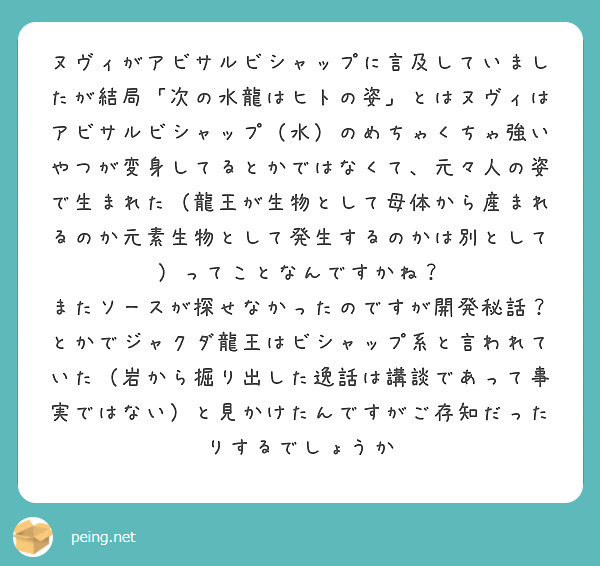 ヌヴィがアビサルビシャップに言及していまし
たが結局「次の水龍はヒトの姿」とはヌヴィは
アビサルビシャップ（水）のめちゃくちゃ強い
やつが変身してるとかではなくて、元々人の姿
で生まれた（龍王が生物として母体から産まれ
るのか元素生物として発生するのかは別として
）ってことなんですかね？
またソースが探せなかったのですが開発秘話？
とかでジャクダ龍王はビシャップ系と言われて
いた（岩から掘り出した逸話は講談であって事
実ではない）と見かけたんですがご存知だった
りするでしょうか
peing.net